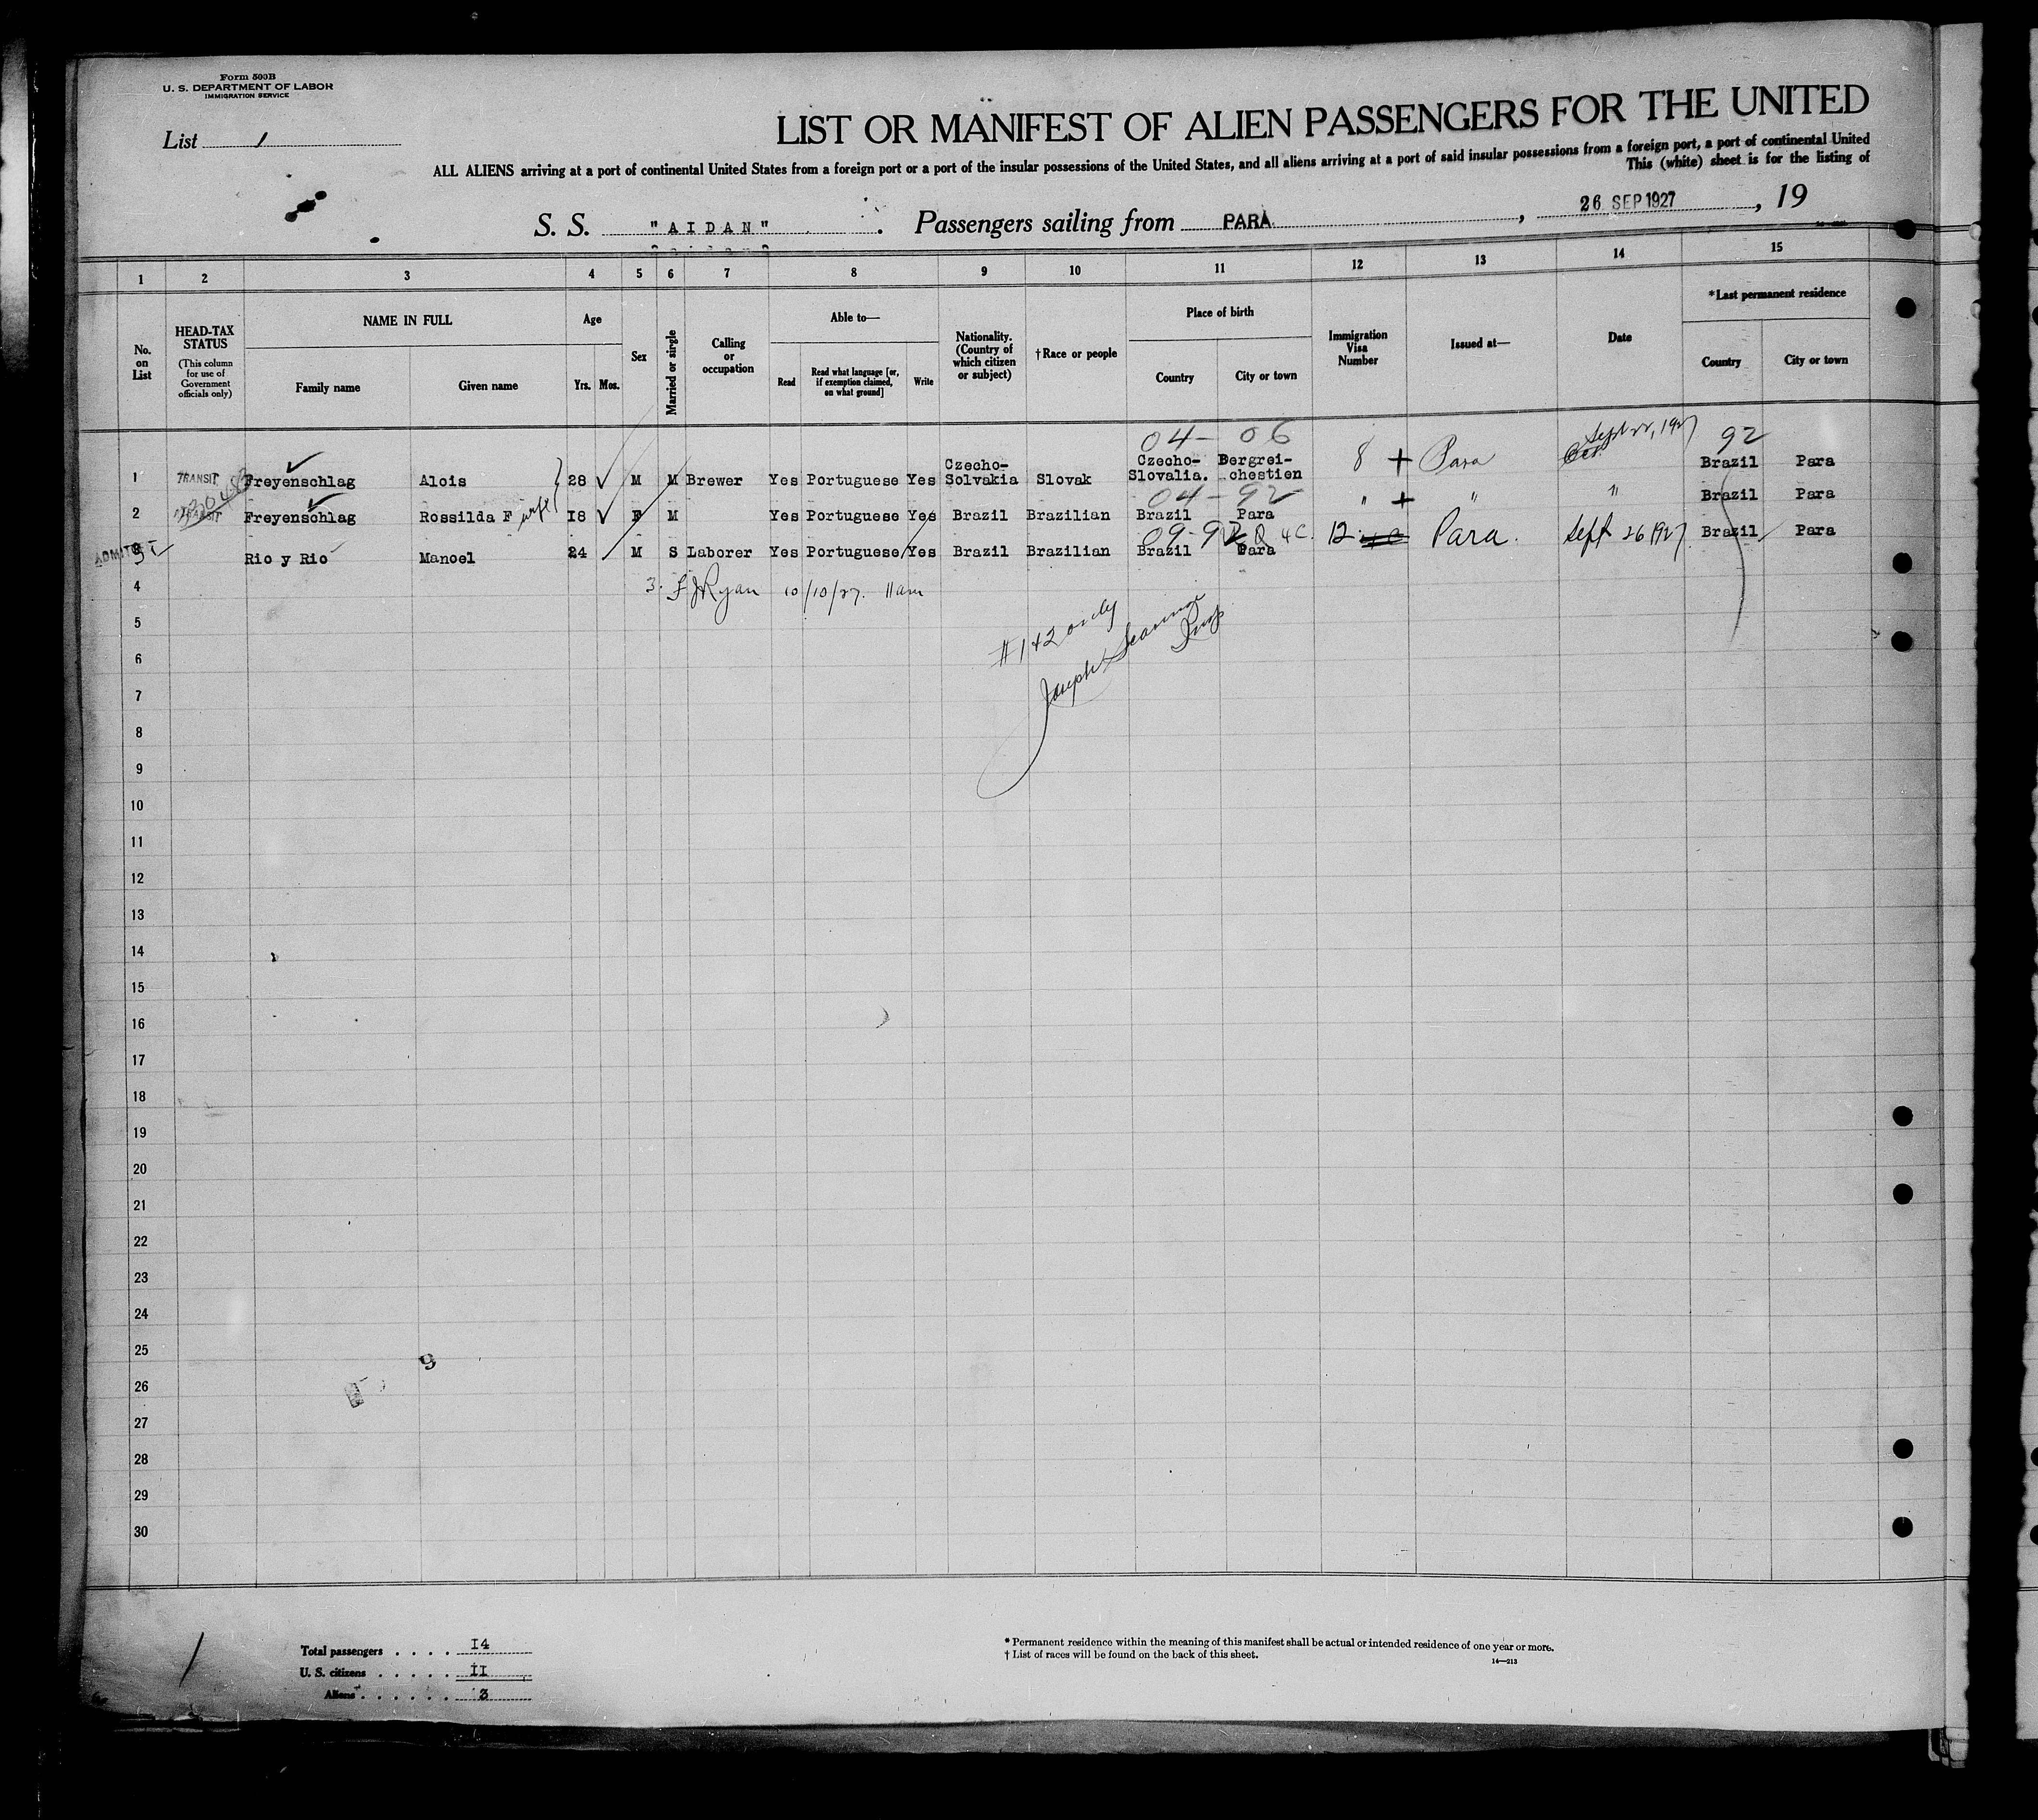 Form 500B
U. S. DEPARTMENT OF LABOR
IMMIGRATION SERVICE
List 1
LIST OR MANIFEST OF ALIEN PASSENGERS FOR THE UNITED
ALL ALIENS arriving at a port of continental United States from a foreign port or a port of the insular possessions of the United States, and all aliens arriving at a port of said insular possessions from a foreign port, a port of continental United
This (white) sheet is for the listing of
S. S. "AIDAN" . Passengers sailing from PARA , 26 SEP 1927 , 19
1 2 3 4 5 6 7 8 9 10 11 12 13 14 15
No. on List
HEAD-TAX STATUS
(This column for use of Government officials only)
NAME IN FULL
Family name Given name
Age
Yrs. Mos.
Sex
Married or single
Calling or occupation
Able to—
Read
Read what language [or, if exemption claimed, on what ground]
Write
Nationality. (Country of which citizen or subject)
†Race or people
Place of birth
Country City or town
Immigration Visa Number
Issued at—
Date
*Last permanent residence
Country City or town
04- 06 Sept 22, 1927 92
1 TRANSIT Freyenschlag Alois 28 M M Brewer Yes Portuguese Yes Czecho-Solvakia Slovak Czecho-Slovalia. Bergrei-chestien 8 + Para Brazil Para
04-92
2 TRANSIT Freyenschlag Rossilda F wife 18 F M Yes Portuguese Yes Brazil Brazilian Brazil Para " + " " Brazil Para
09-92 4C.
ADMITTED 3 Rio y Rio Manoel 24 M S Laborer Yes Portuguese Yes Brazil Brazilian Brazil Para 12 Para. Sept 26 1927 Brazil Para
4 3. F J Ryan 10/10/27. 11am
5 #1+2 only
6 Joseph Insp
7
8
9
10
11
12
13
14
15
16
17
18
19
20
21
22
23
24
25 9
26
27
28
29
30
Total passengers . . . . 14
U. S. citizens . . . . . 11
Aliens . . . . . . 3
* Permanent residence within the meaning of this manifest shall be actual or intended residence of one year or more.
† List of races will be found on the back of this sheet.
14—213